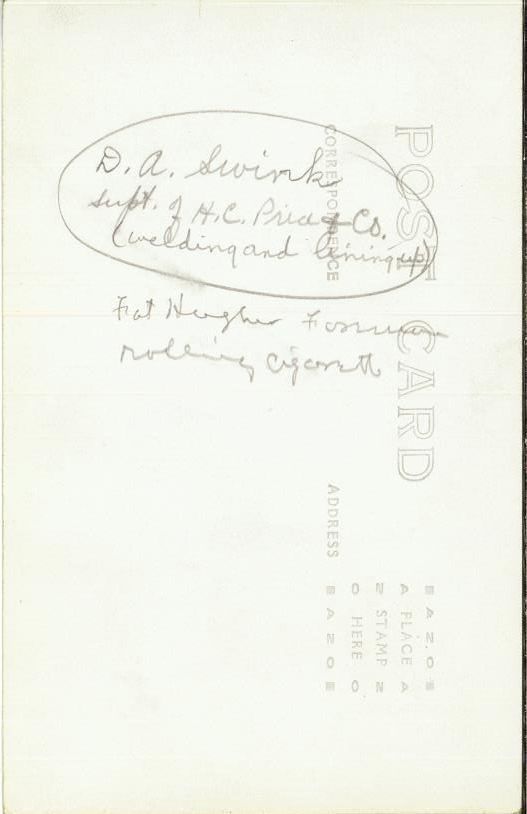 D. A. Swink
supt. of H.C. Price Co.
(welding and lining up)
Fat Hughes Foreman
rolling cigarett
POST CARD
CORRESPONDENCE
ADDRESS
PLACE
STAMP
HERE